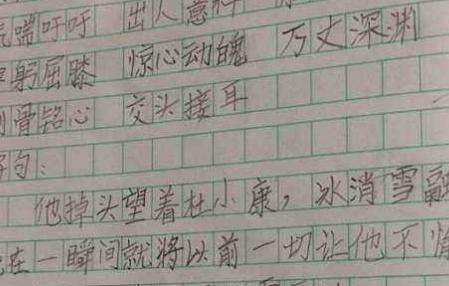 气喘吁吁 出人意料
躬屈膝 惊心动魄 万丈深渊
刻骨铭心 交头接耳
好句:
他掉头望着杜小康,冰消雪融
在一瞬间就将以前一切让他不愉